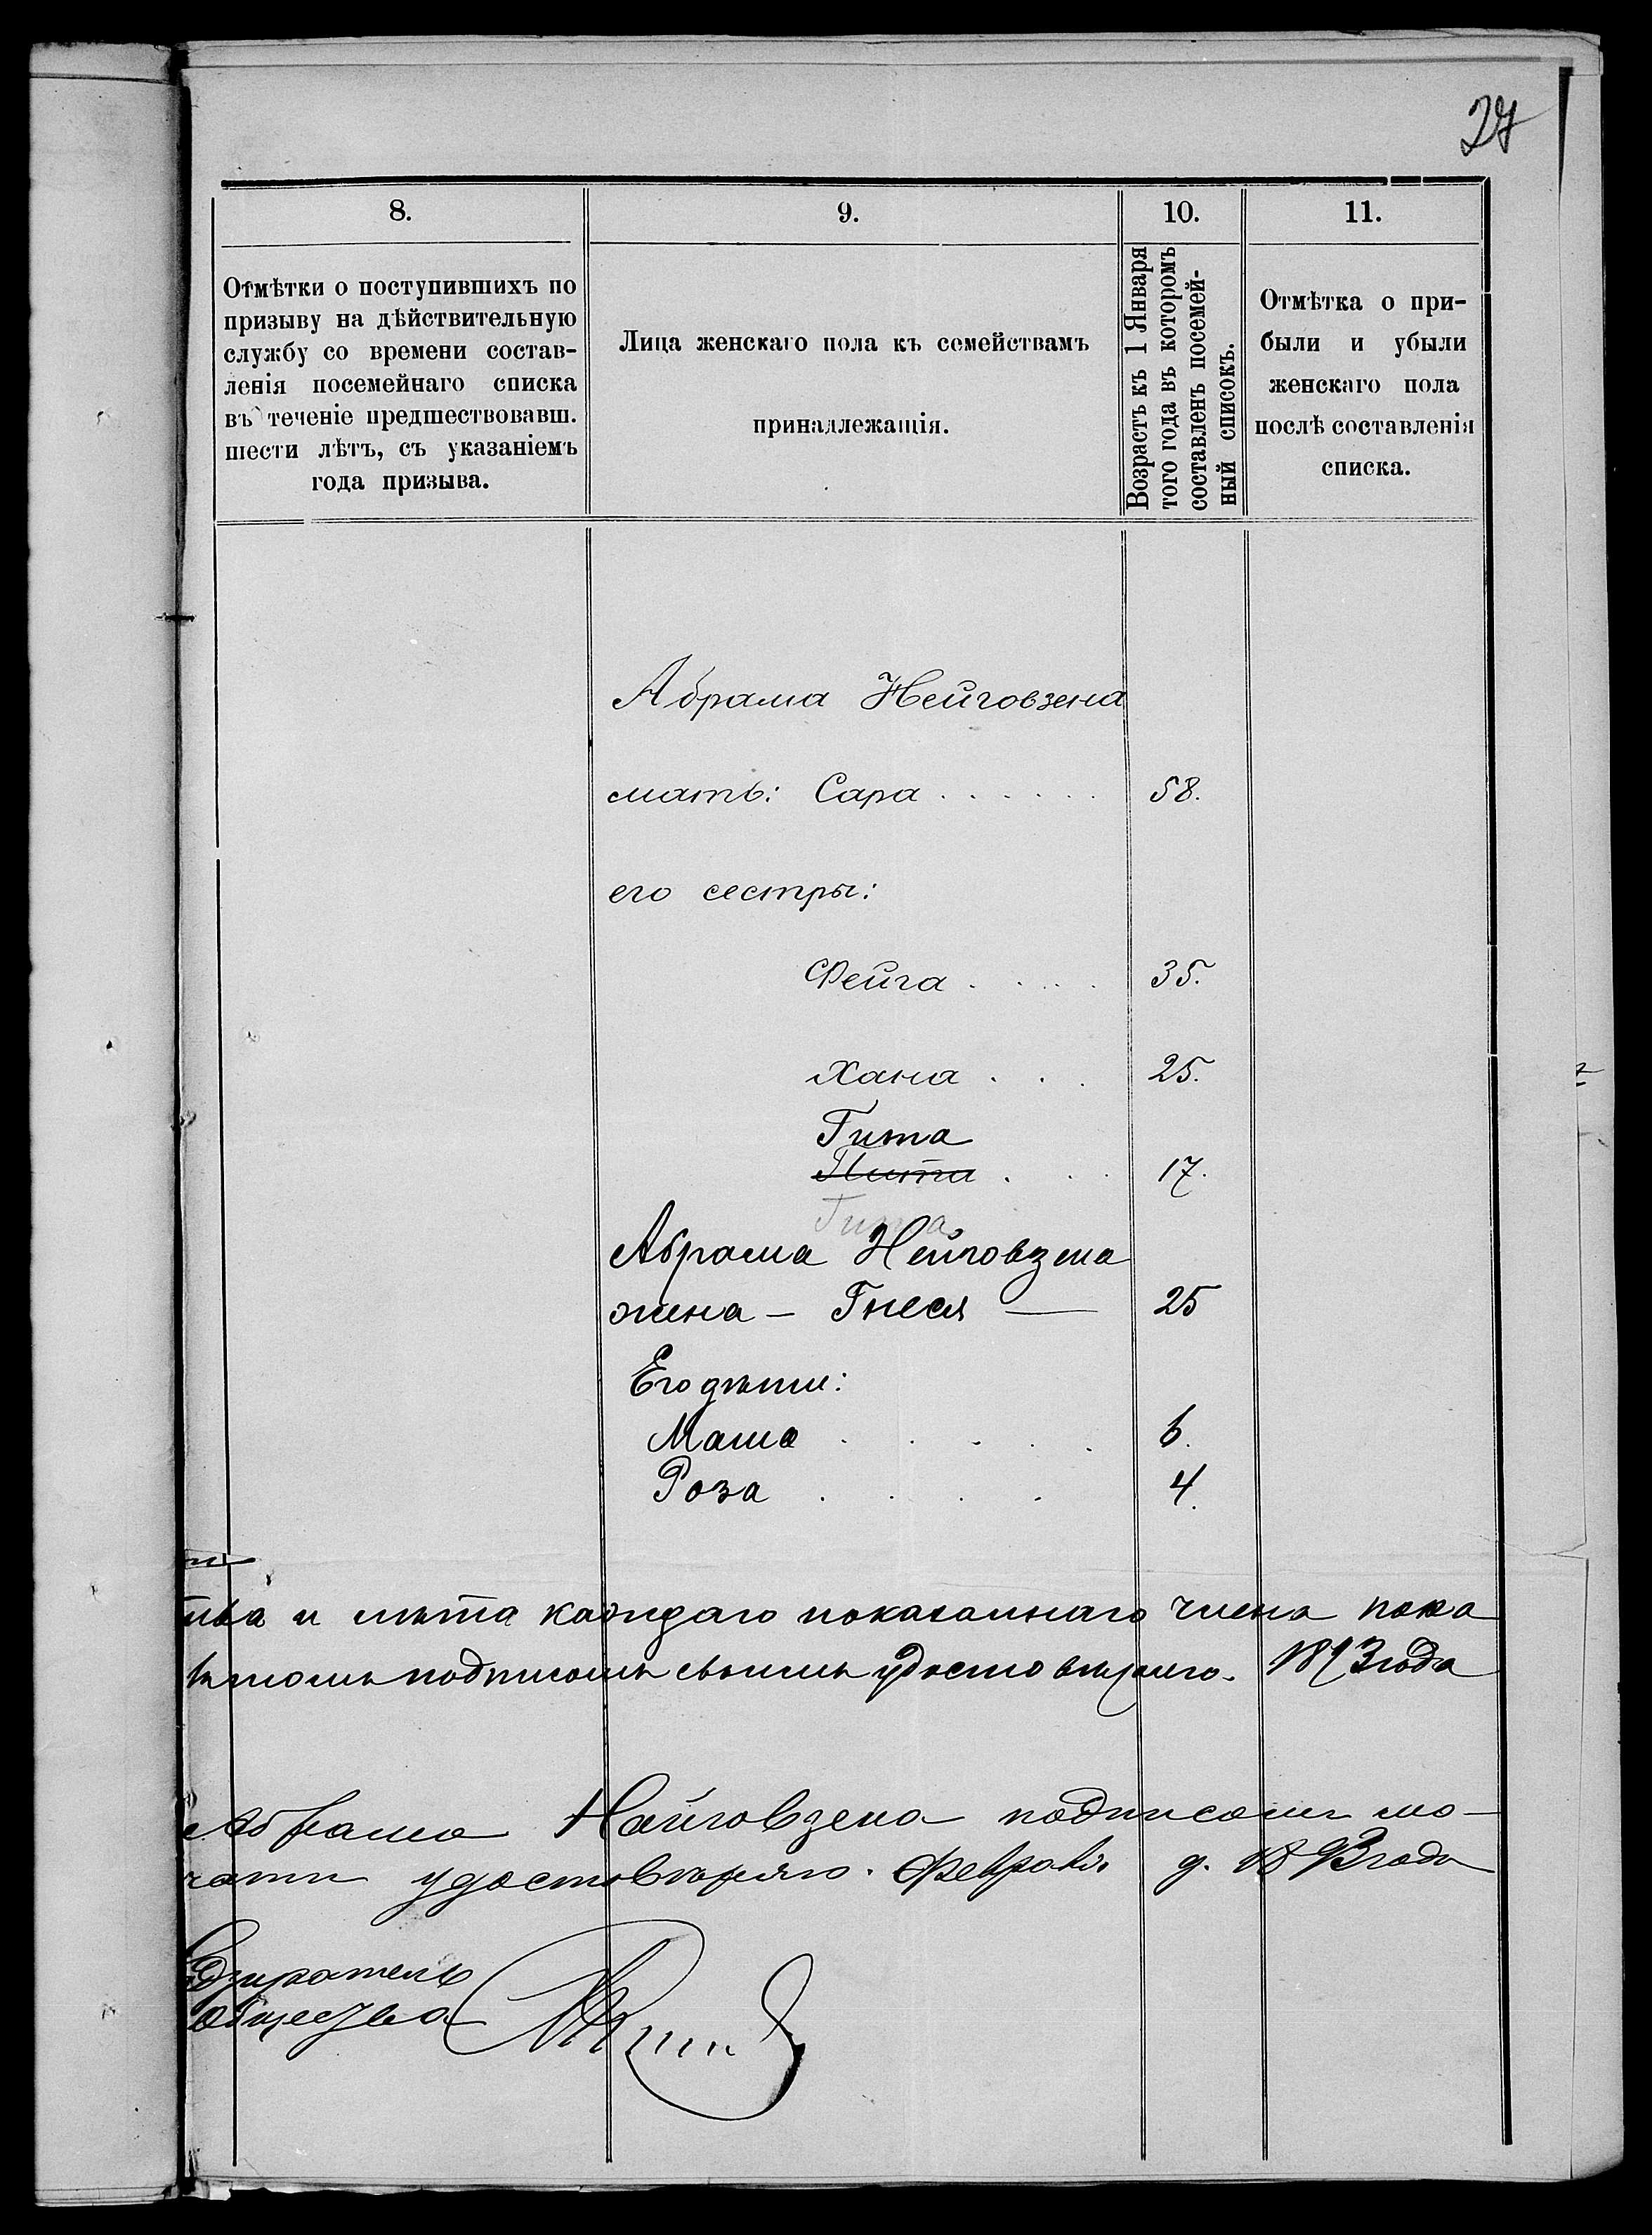 27
8.
9.
10.
11.
Отмѣтки о поступившихъ по
призыву на дѣйствительную
службу со времени состав-
ленія посемейнаго списка
въ теченіе предшествовавш.
шести лѣтъ, съ указаніемъ
года призыва.
Лица женскаго пола къ семействамъ
принадлежащія.
Возрастъ къ 1 Января
того года въ которомъ
составленъ посемей-
ный списокъ.
Отмѣтка о при-
были и убыли
женскаго пола
послѣ составленія
списка.
Абрама Нейговзена
мать: Сара . . . . . . 58.
его сестры:
Фейга . . . . . 35.
Хана . . . 25.
Гита
Пита . . . 17.
Гита
Абрама Нейговзена
жена — Гнеся — 25
Его дѣти:
Маша . . . . . 6.
Роза . . . . 4.
и лѣта каждаго показаннаго члена пока
подписомъ своимъ удостовѣряю. 1893 года
Абрама Найговзена подписомъ мо-
удостовѣряю. Февраля д. 1893 года
общества